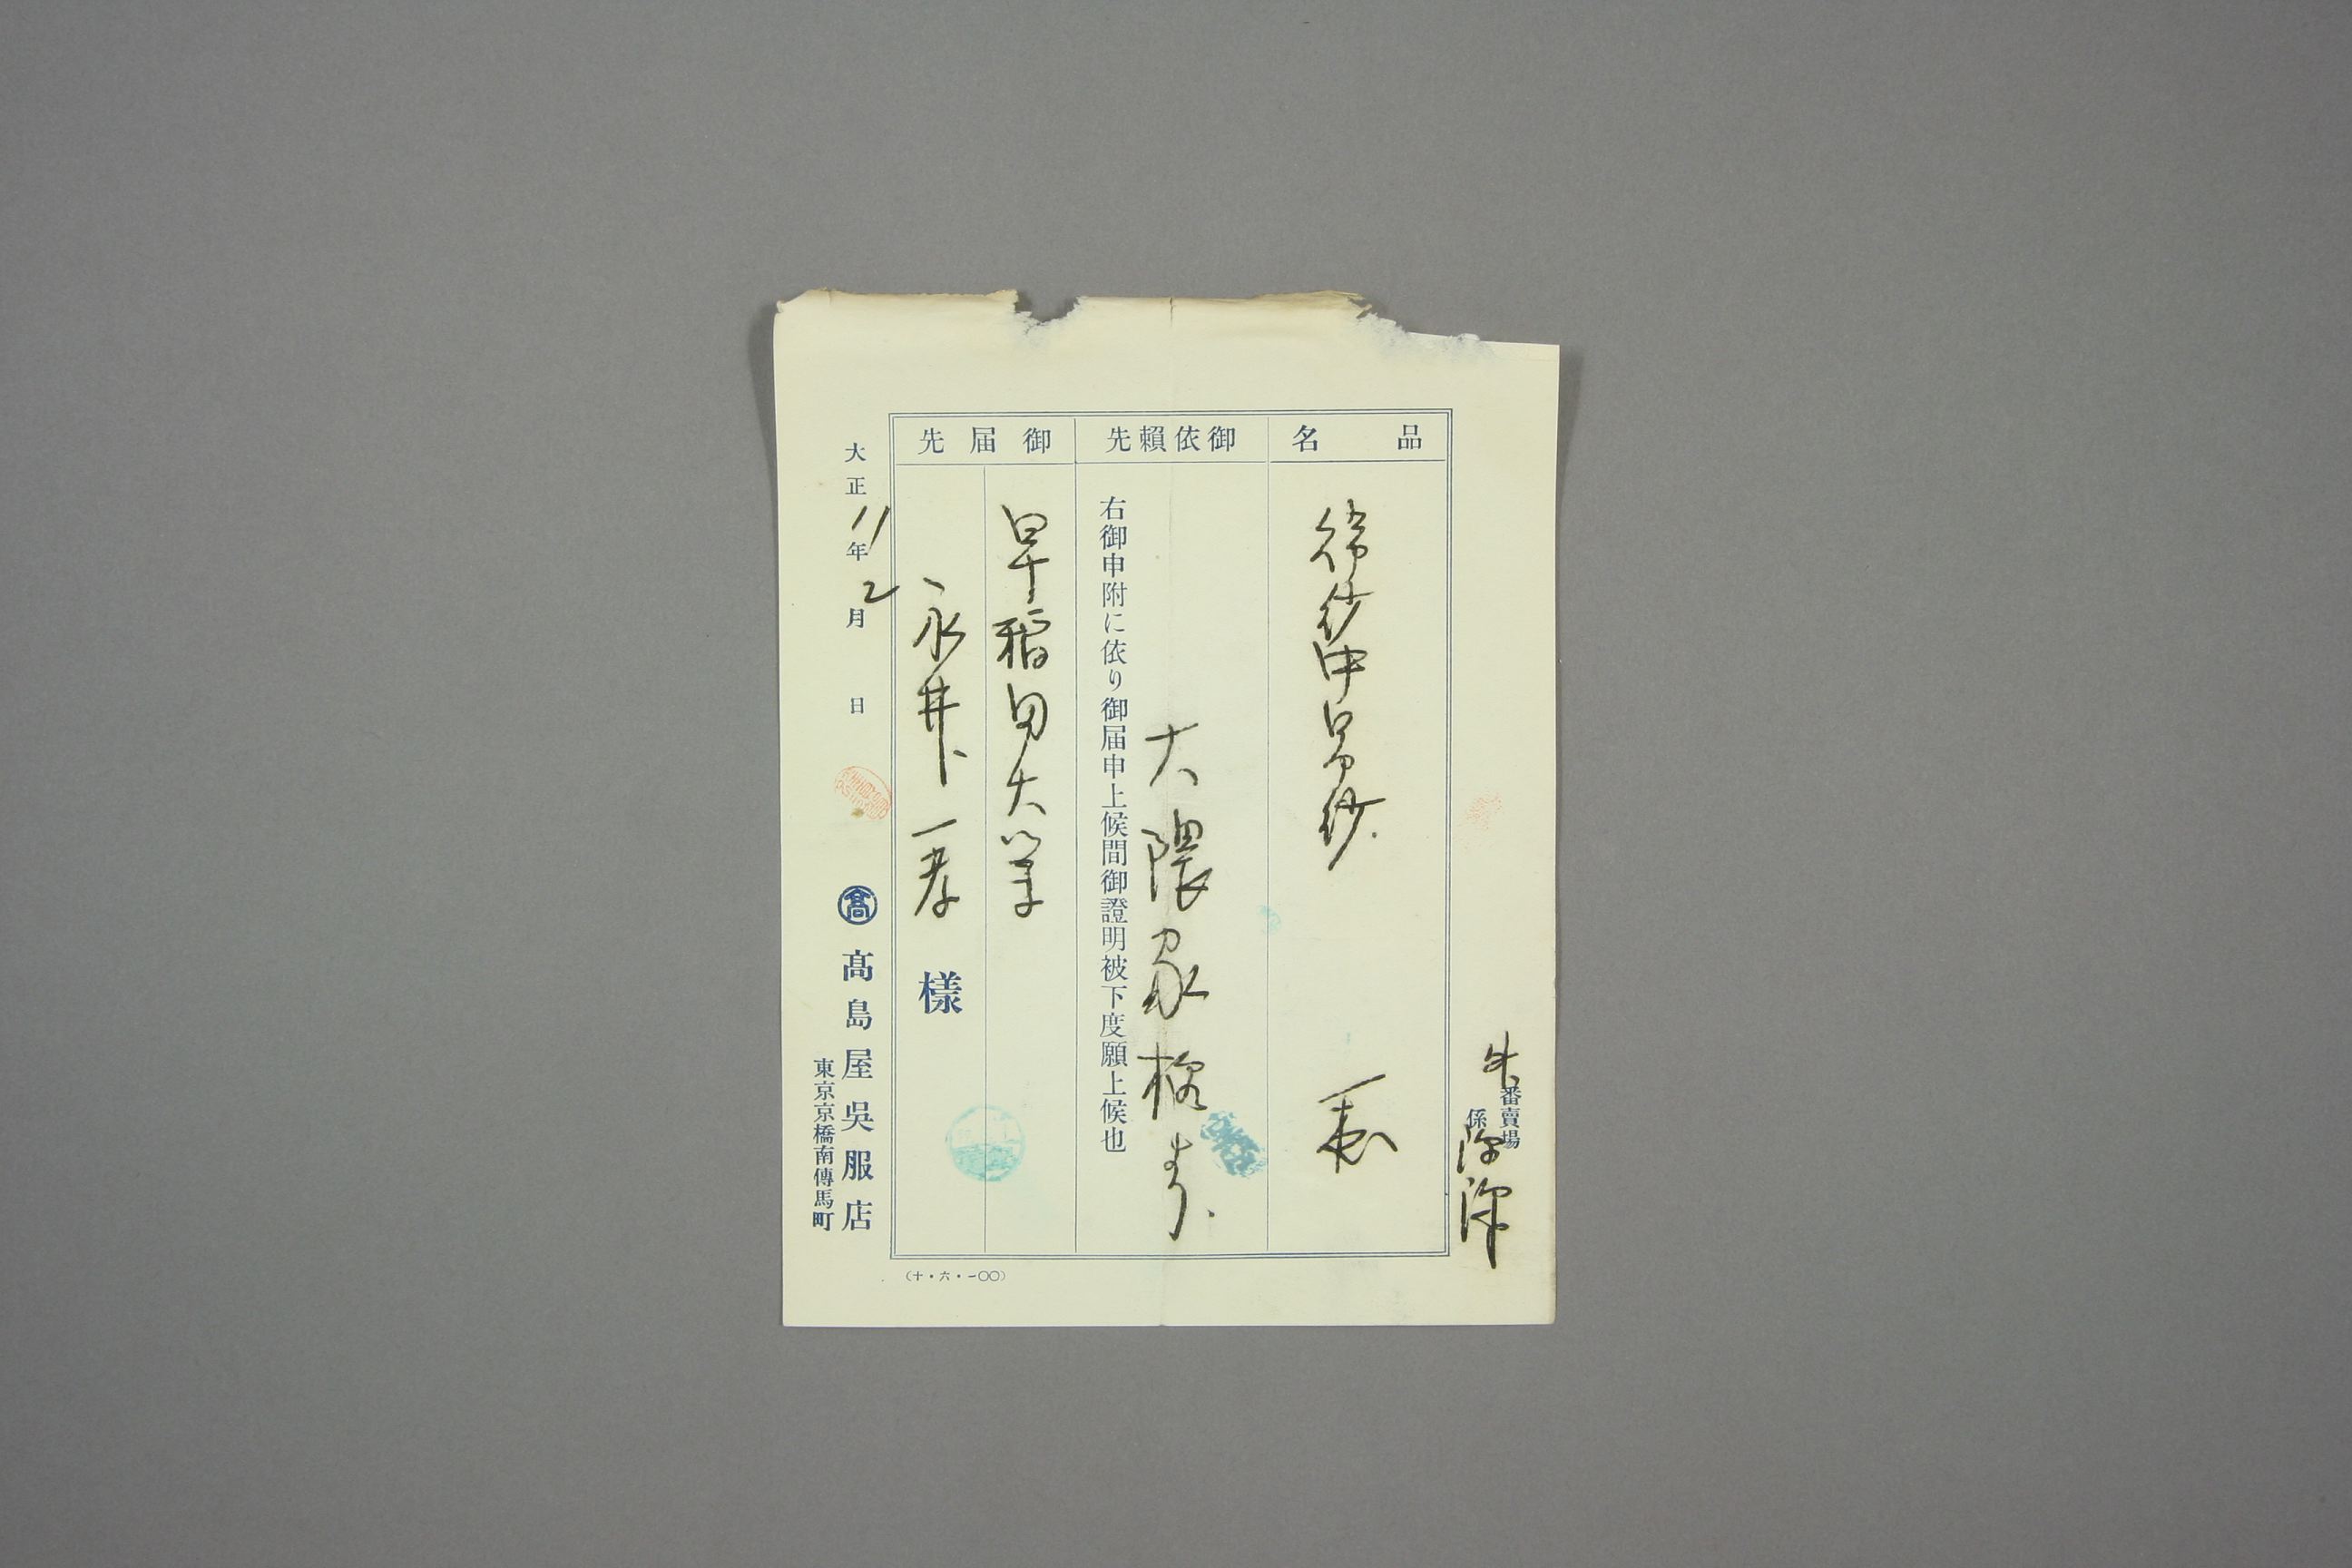 番賣場
係
品名
御依賴先
大隈家様より
右御申附に依り御届申上候間御證明被下度願上候也
御届先
早稲田大学
永井一孝様
大正11年2月日
髙
髙島屋吳服店
東京京橋南傳馬町
(十・六・一〇〇)